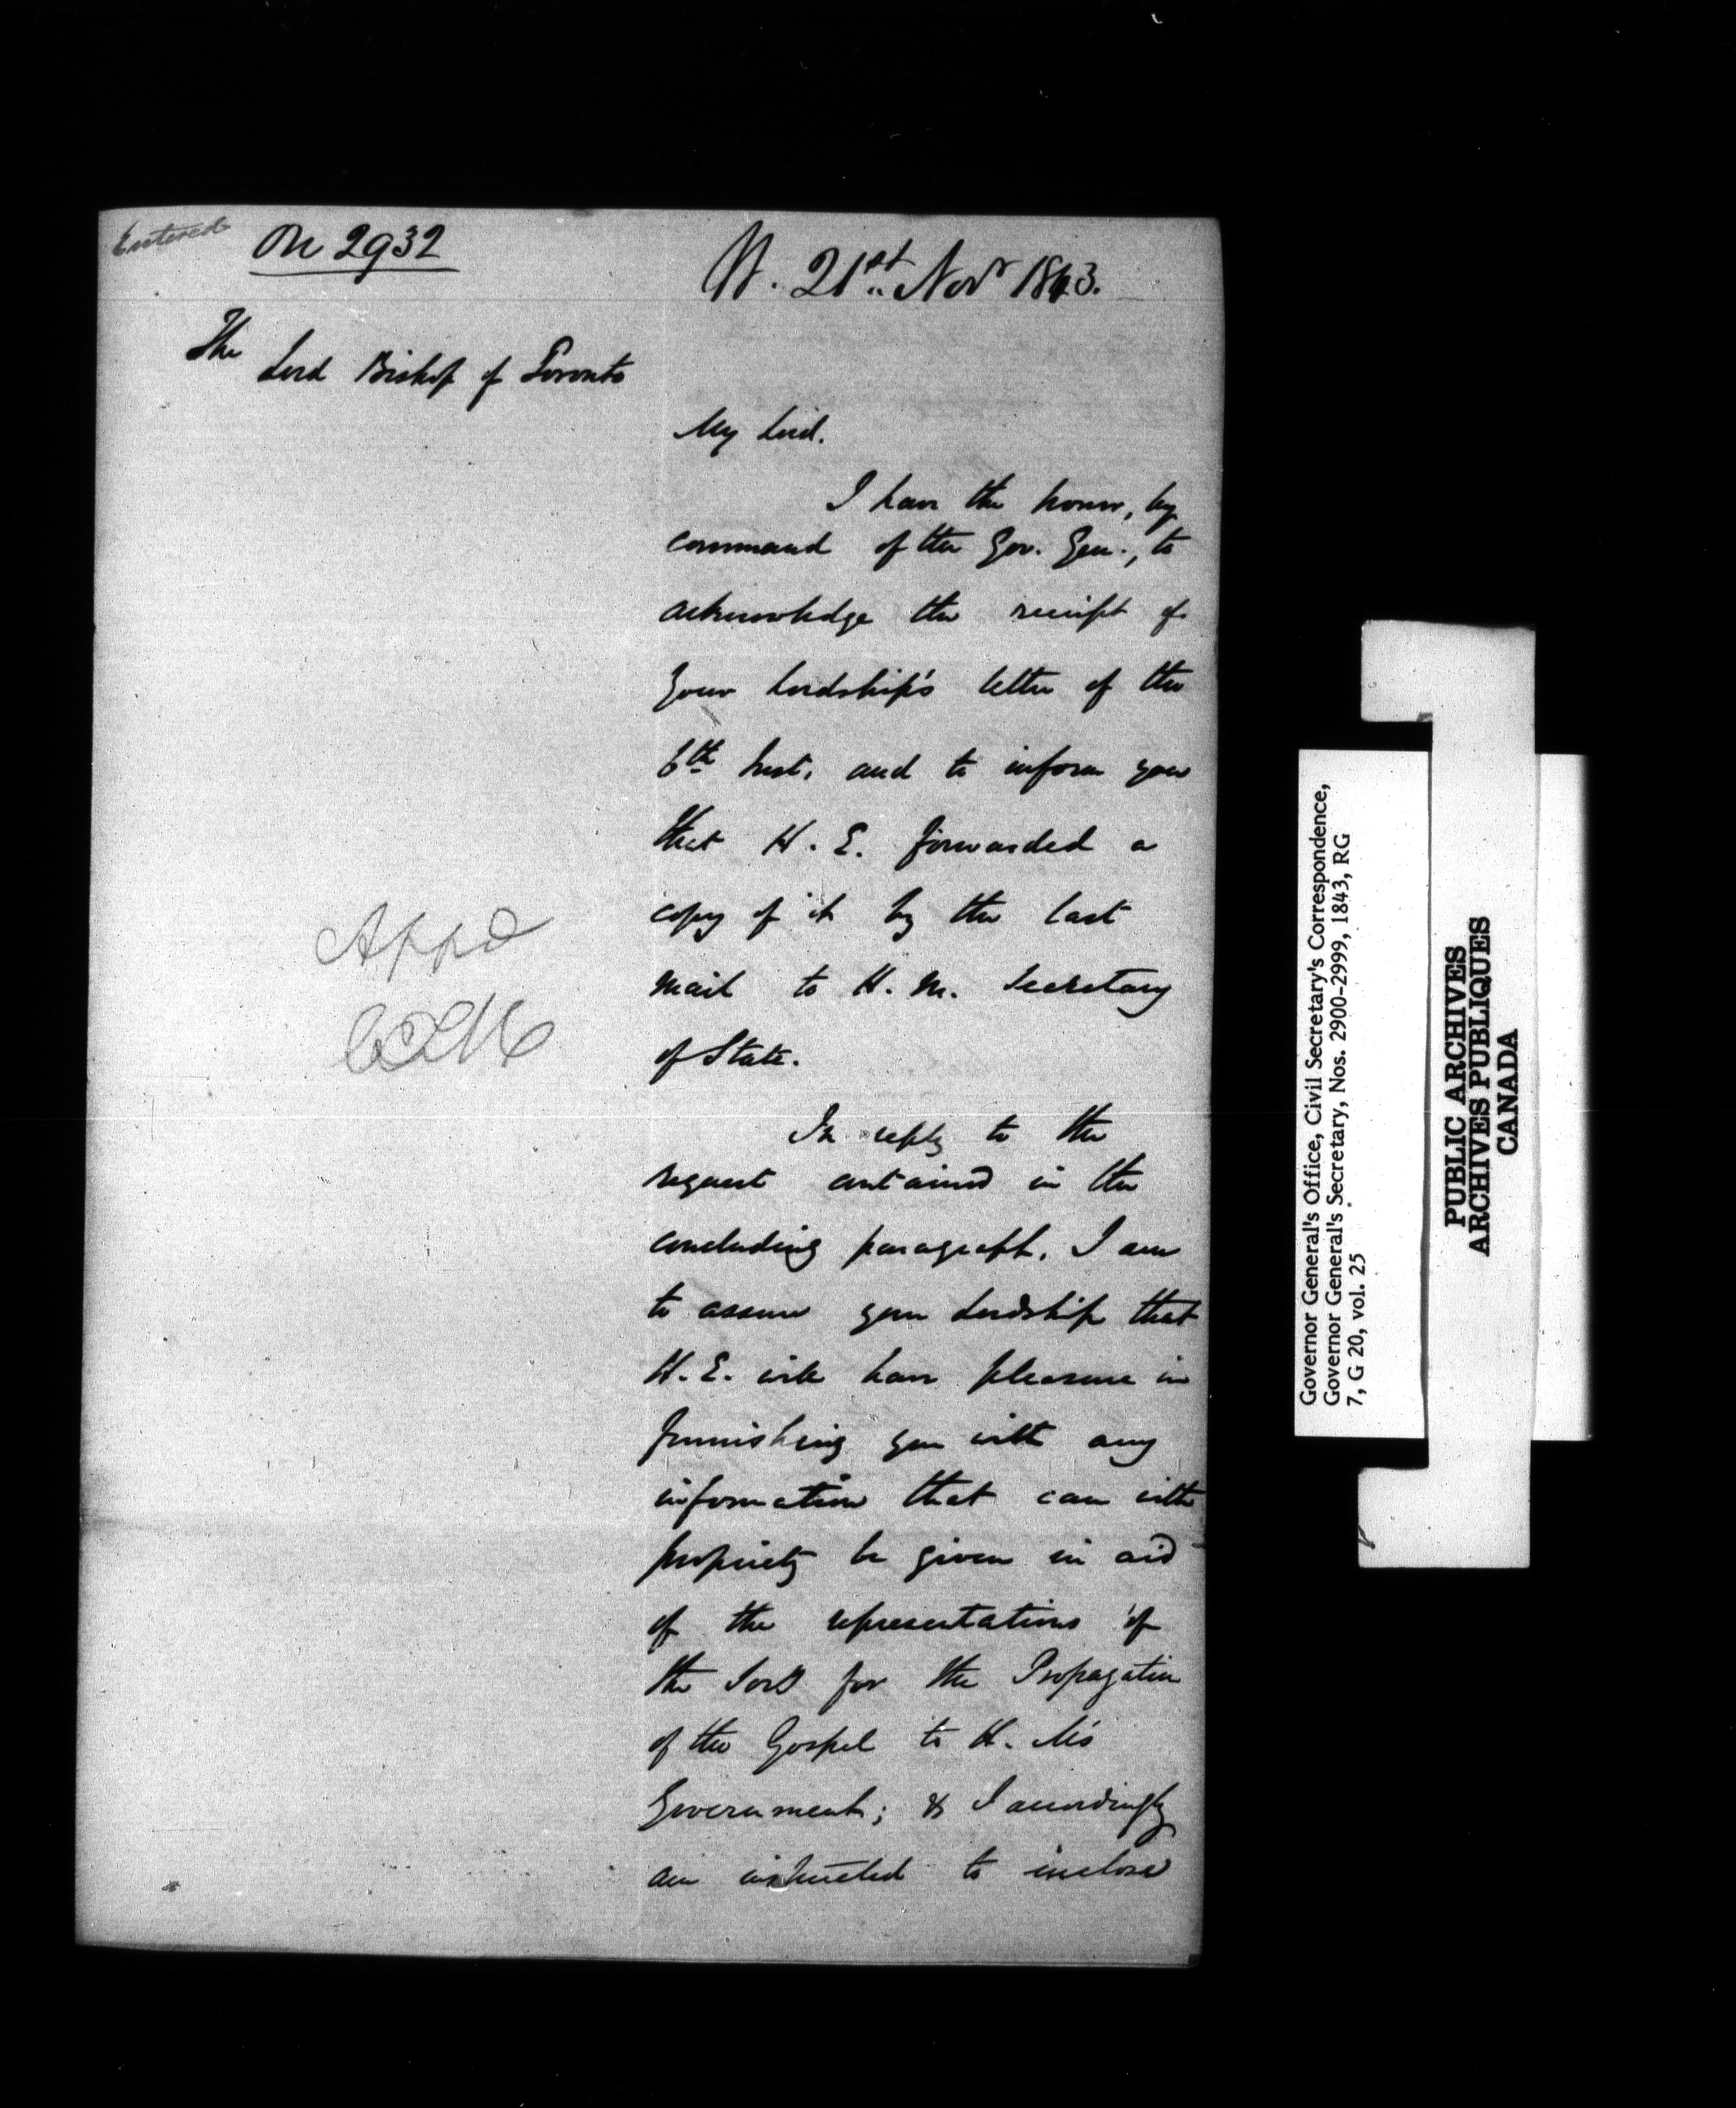 Entered
On 2932
21st Novr 1843.
The
Lord Bishop of Toronto
My Lord.
I have the honor, by
command of the Gov. Gen., to
acknowledge the receipt of
Your Lordship's letter of the
6th Inst. and to inform you
that H. E. forwarded a
copy of it by the last
mail to H. M. Secretary
of State.
Appd
In reply to the
request contained in the
concluding paragraph, I am
to assure your Lordship that
H. E. will have pleasure in
furnishing you with any
information that can with
propriety be given in aid
of the representations of
the for the Propagation
of the Gospel to H. M's
Government; & I accordingly
am instructed to inclose
Governor General's Office, Civil Secretary's Correspondence,
Governor General's Secretary, Nos. 2900-2999, 1843, RG
7, G 20, vol. 25
PUBLIC ARCHIVES
ARCHIVES PUBLIQUES
CANADA